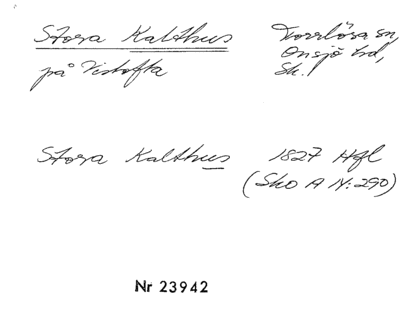 Stora Kalthus
Torrlösa sn,
Onsjö hd,
Sk.
på Vistofta
Stora Kalthus 1827 Hfl
(Sko A N:290)
Nr 23942